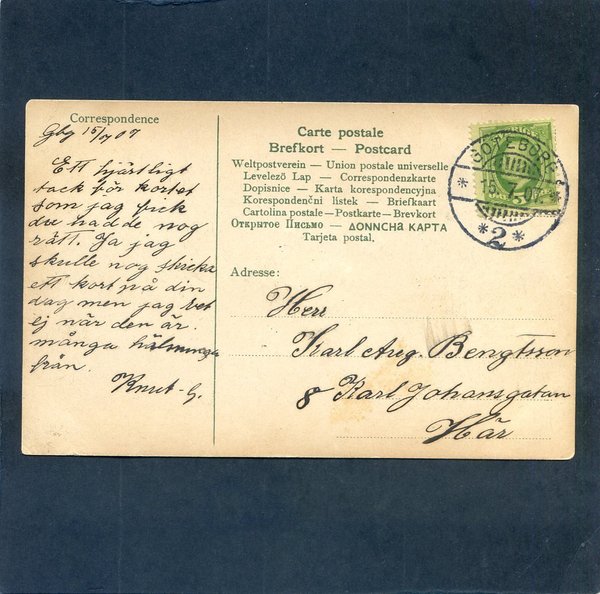 Correspondence
Gbg 15/7 07
Ett hjärtligt
tack för kortet
som jag fick
du hadde nog
rätt. Ja jag
skulle nog skicka
ett kort på din
dag men jag vet
ej när den är.
många hälsningar
från.
Knut-G.
Carte postale
Brefkort — Postcard
Weltpostverein — Union postale universelle
Levelező Lap — Correspondenzkarte
Dopisnice - Karta korespondencyjna
Korespondenční listek - Briefkaart
Cartolina postale - Postkarte - Brevkort
Открытое Письмо — ДОПИСНА КАРТА
Tarjeta postal.
GÖTEBORG
15
*2*
Adresse:
Herr
Karl Aug. Bengtsson
8 Karl Johansgatan
Här